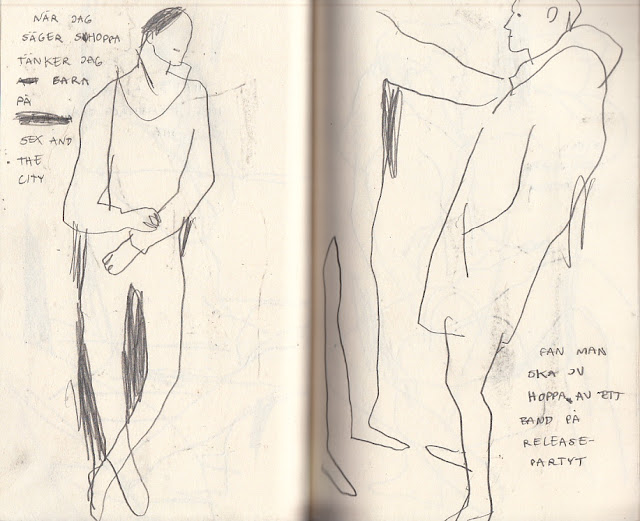 NÄR JAG
SÄGER SHOPPA
TÄNKER JAG
BARA
PÅ
SEX AND
THE
CITY
FAN MAN
SKA JU
HOPPA AV ETT
BAND PÅ
RELEASE-
PARTYT